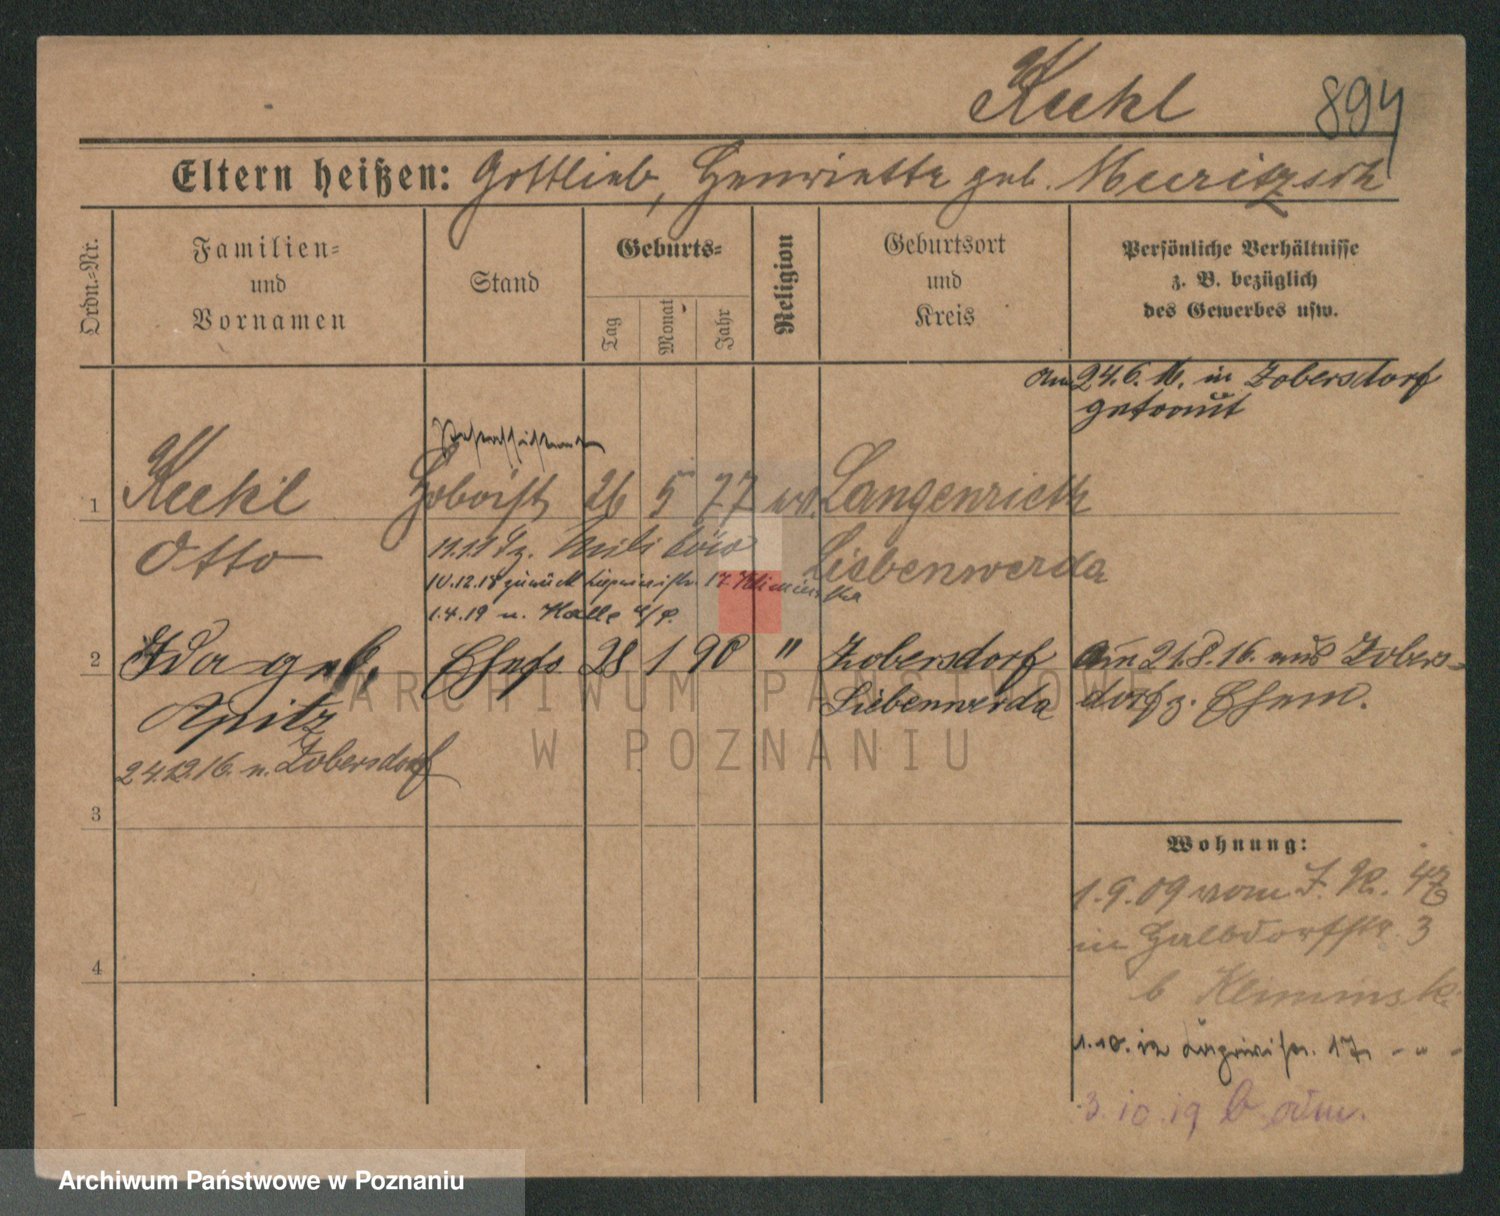 Kuhl 894
Eltern heißen: Gottlieb, Henriette geb.
Ordn.-Nr.
Familien-
und
Vornamen
Stand
Geburts-
Tag
Monat
Jahr
Religion
Geburtsort
und
Kreis
Persönliche Verhältnisse
z. B. bezüglich
des Gewerbes usw.
Am 24.6.16. in Zobersdorf
getraut
1 Kuhl Hoboist 26 5 77 ev. Langenrieth
Otto
Liebenwerda
10.12.18 zurück 17
1.4.19 n. Halle a/S.
2 Ida geb. Ehefr. 28 1 90 " Zobersdorf Am 21.8.16. aus Zobers-
Apitz Liebenwerda dorf z. Ehem.
24.12.16. n. Zobersdorf
3
4
Wohnung:
1.9.09 vom I. R. 47
in Halbdorfstr. 3
b
1.10.12 17, - " -
3.10.19
ARCHIWUM PAŃSTWOWE
W POZNANIU
Archiwum Państwowe w Poznaniu